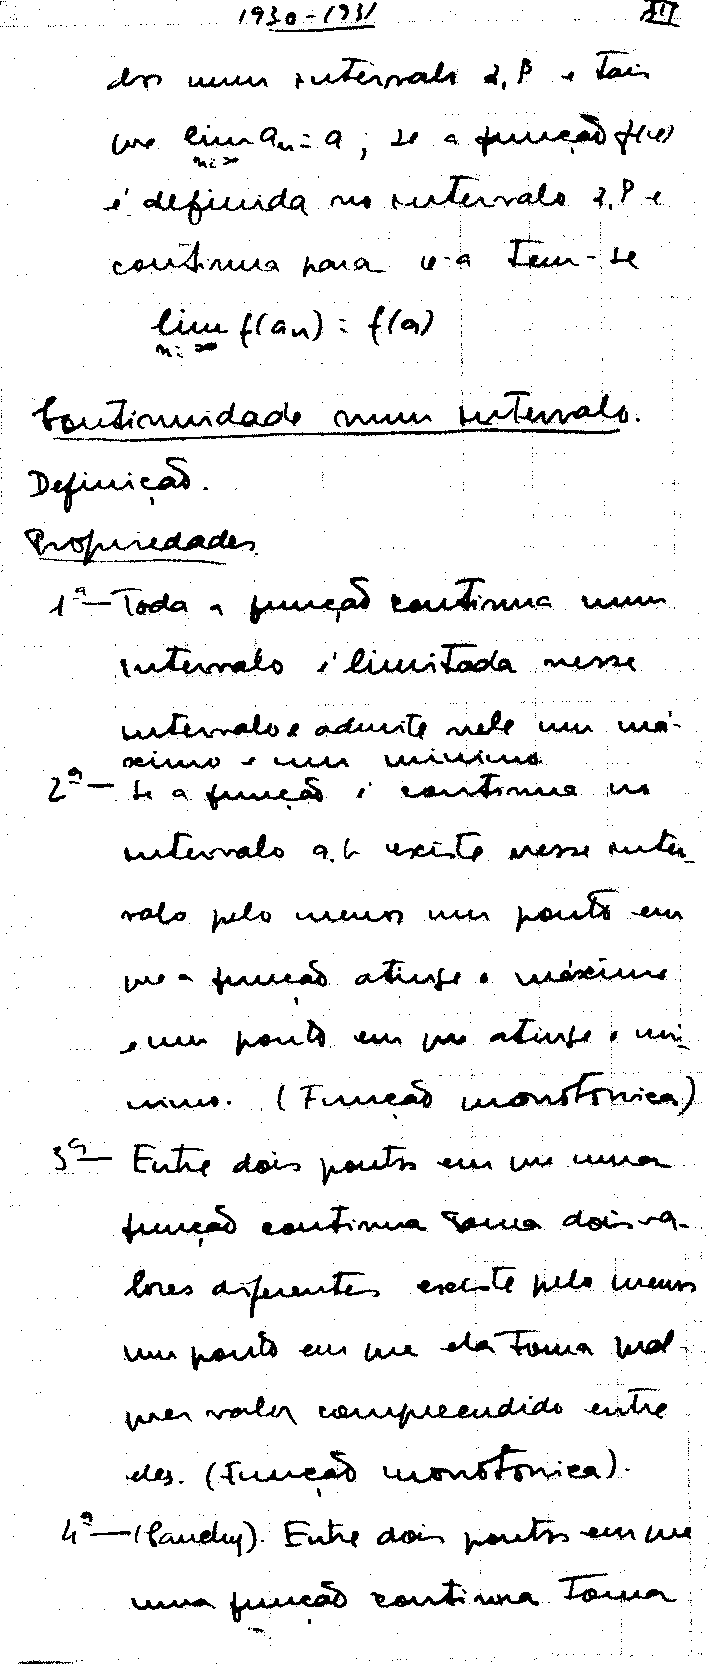 1930-1931 XII
dos num intervalo α, β e tais
que lim aₙ = a ; se a função f(x)
n=∞
é definida no intervalo α, β e
continua para x=a tem-se
lim f(aₙ) = f(a)
n=∞
Continuidade num intervalo.
Definição.
Propriedades
1ª — Toda a função continua num
intervalo é limitada nesse
intervalo e admite nele um má-
ximo e um minimo
2ª — Se a função é continua no
intervalo a, b existe nesse inter-
valo pelo menos um ponto em
que a função atinge o máximo
e um ponto em que atinge o mi-
nimo. (Função monotónica)
3ª — Entre dois pontos em que uma
função continua toma dois va-
lores diferentes existe pelo menos
um ponto em que ela toma qual-
quer valor compreendido entre
eles. (Função monotónica).
4ª — (Cauchy). Entre dois pontos em que
uma função continua toma